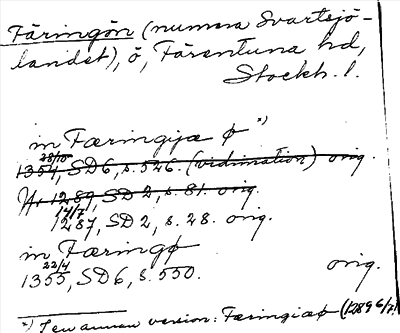 Färingön (numera Svartsjö-
landet), ö, Färentuna hd,
Stockh. l.
in Færingijæ ø *)
28/10
1354, SD 6, s. 526. (vidimation) orig.
1289, SD 2, s. 81. orig.
14/7
1287, SD 2, s. 28. orig.
in Færingø
22/4
1355, SD 6, s. 550. orig.
*) I en annan version: Færingiæø (1289 6/7)